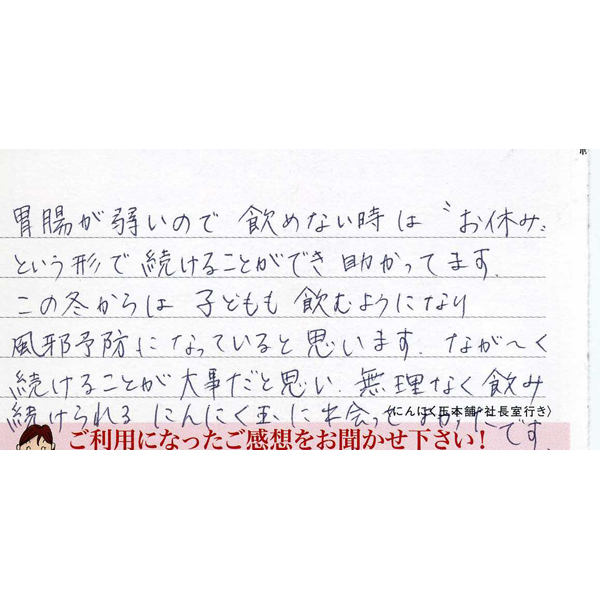 胃腸が弱いので 飲めない時は〝お休み〟
という形で続けることができ 助かってます.
この冬からは 子どもも 飲むようになり
風邪予防になっていると 思います. なが〜く
続けることが 大事だと思い. 無理なく飲み
続けられる にんにく玉に出会ってよかったです.
にんにく玉本舗・社長室行き〉
ご利用になったご感想をお聞かせ下さい!